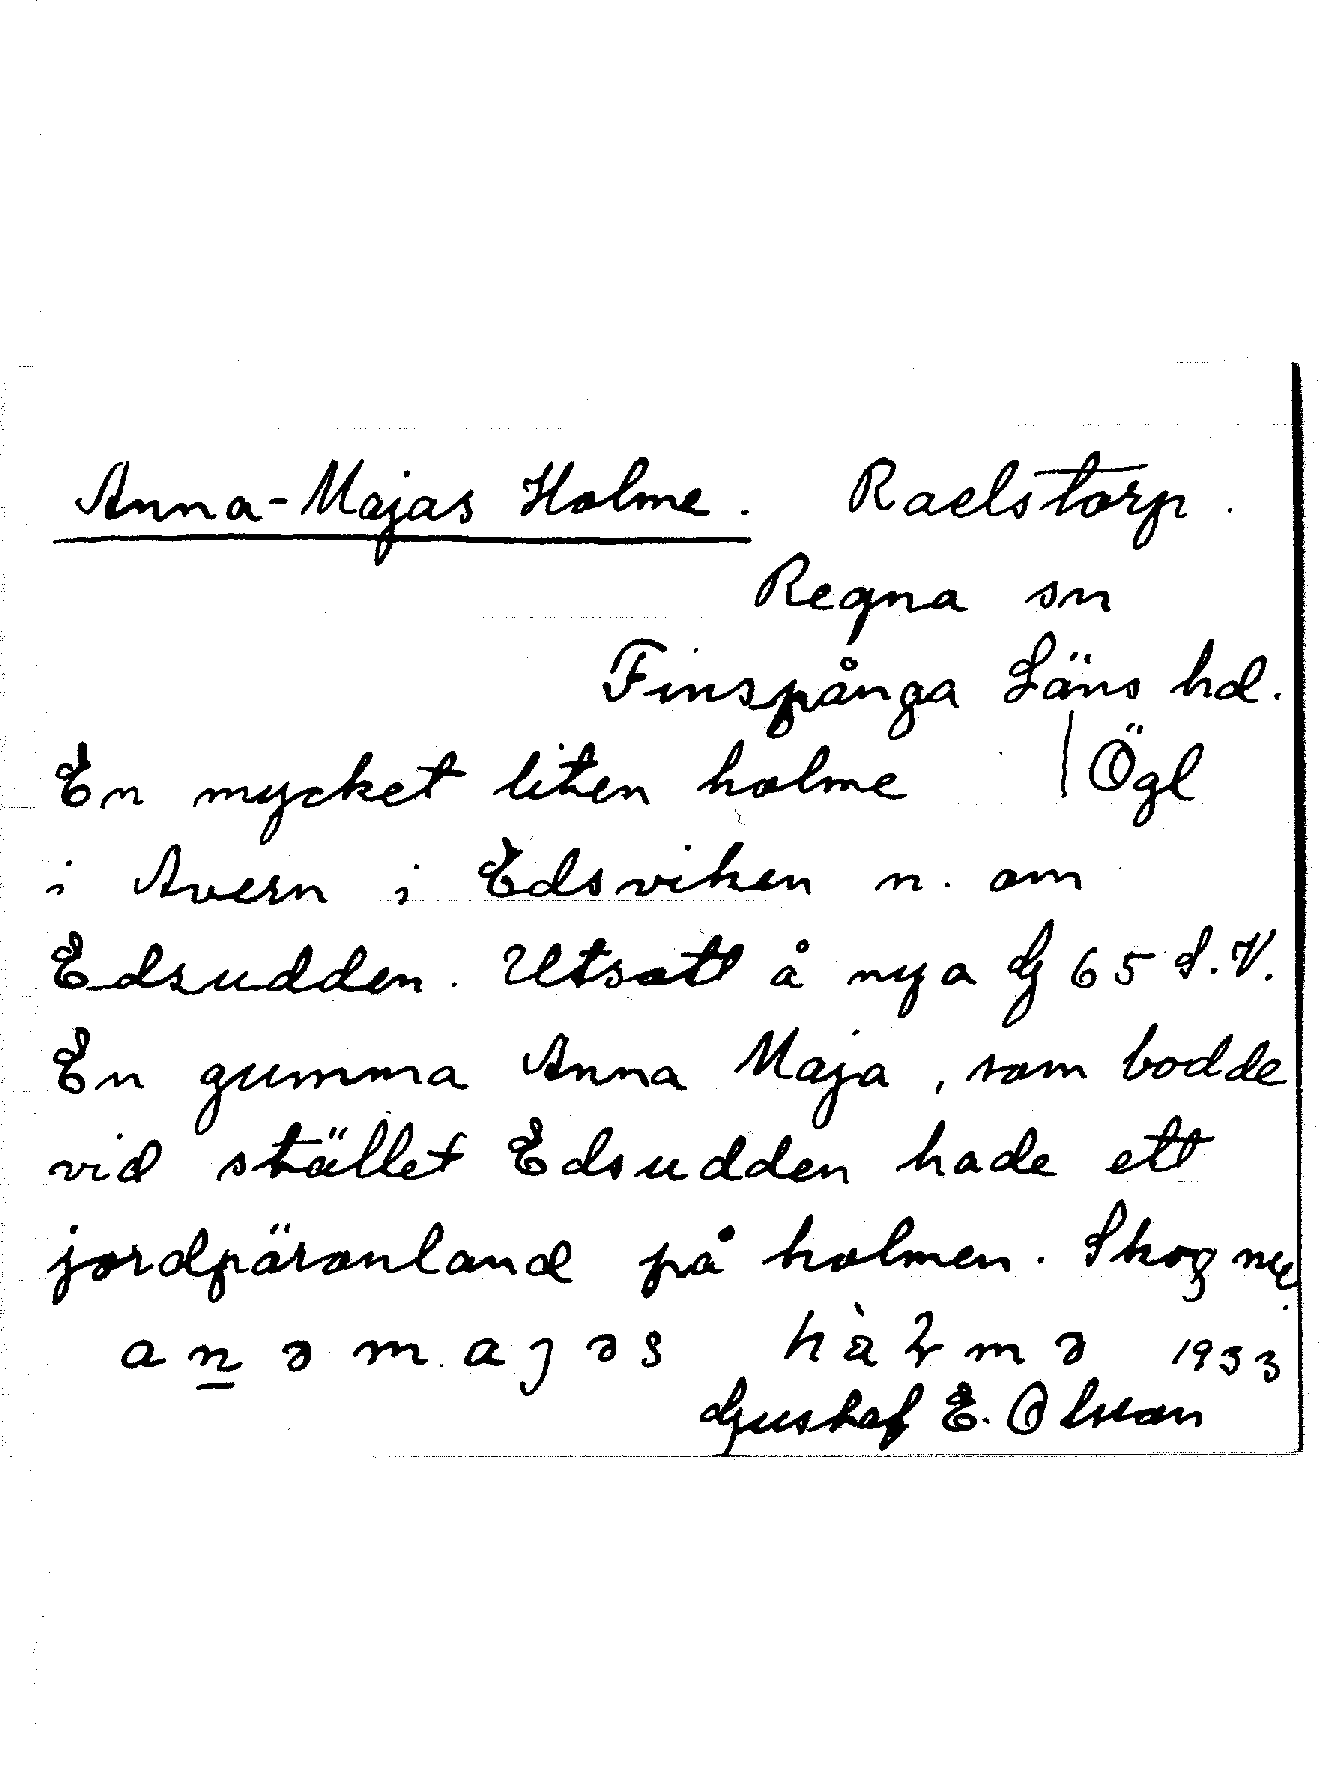 Anna-Majas Holme. Raelstorp.
Regna sn
Finspånga Läns hd.
En mycket liten holme | Ögl
i Avern i Edsviken n. om
Edsudden. Utsatt å nya G 65 S.V.
En gumma Anna Maja, som bodde
vid stället Edsudden hade ett
jordpäronland på holmen. Skog nu.
anəmajəs hàlmə 1933
Gustaf E. Olsson